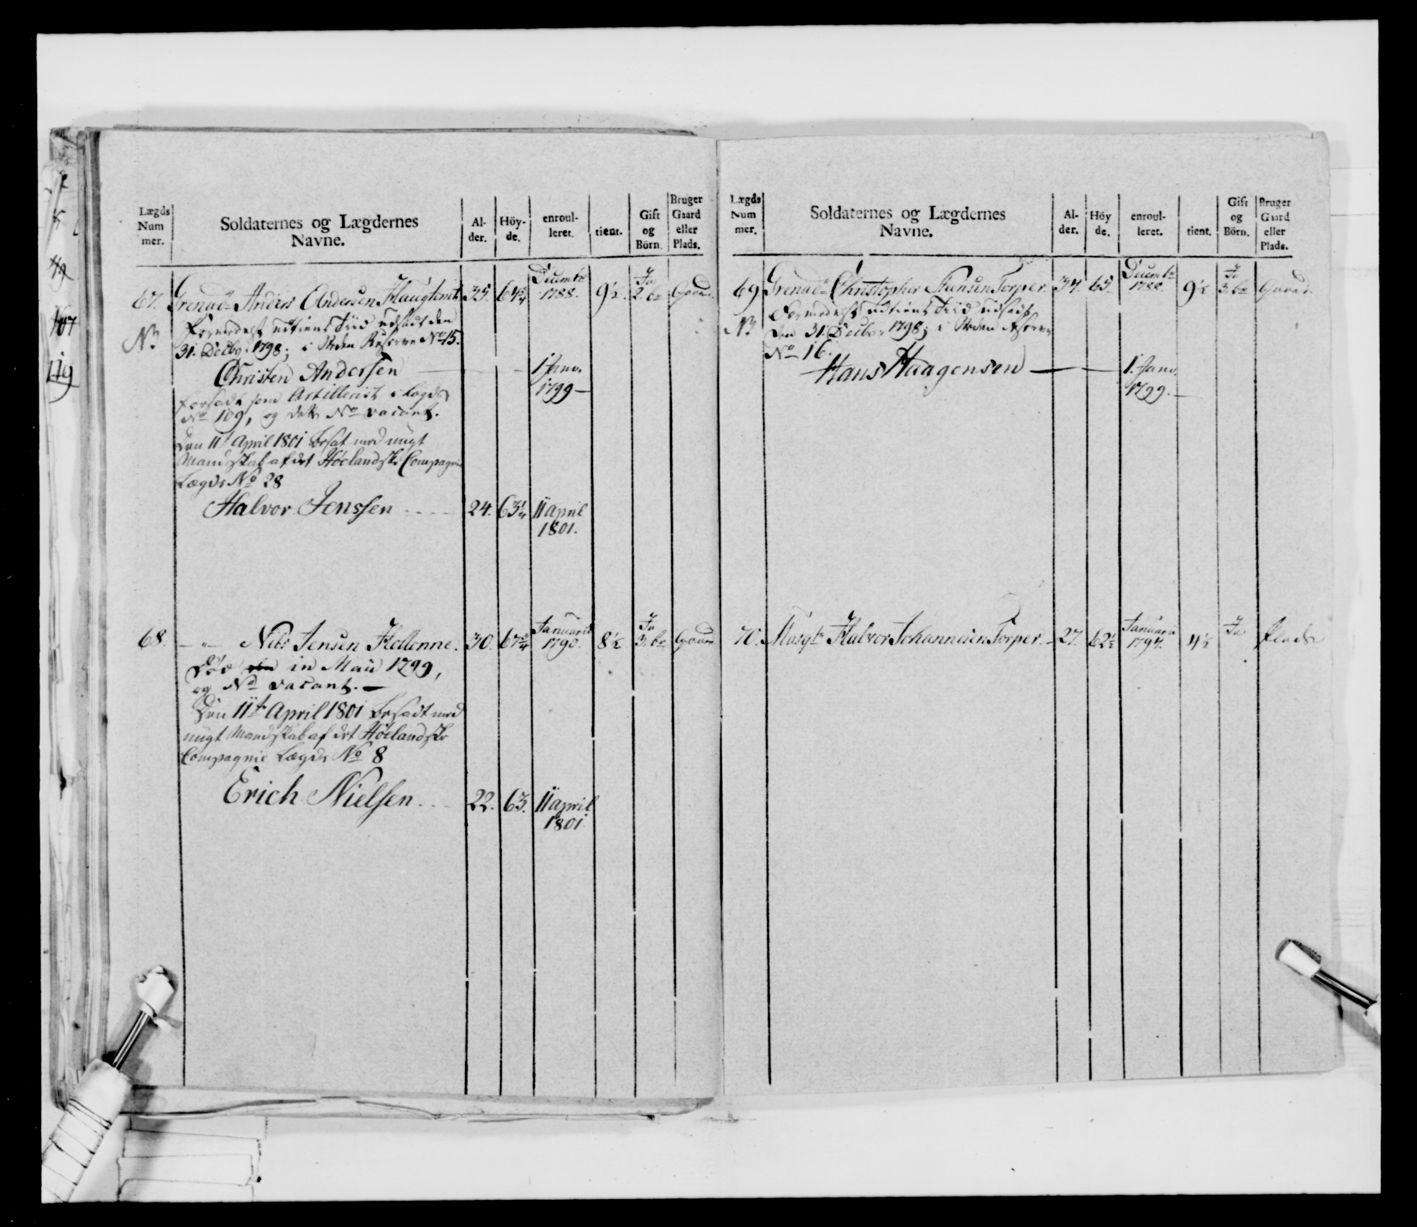 Lægds Num mer.
Soldaternes og Lægdernes Navne.
Al- der.
Höy- de.
enroul- leret.
tient.
Gift og Börn.
Bruger Gaard eller Plads.
67. Grenadr Anders Andersen 35. 64¾ Decembr 1788. 9½. Ja 2 br Gaard
No
31. Decbr 1798; i Reserve No 15.
Christen Andersen — 1 Janv. 1799 —
Artillerist Lægds
No 109, og dette No vacant.
Den 11t April 1801 besat med nügt
Mandskab af det Höelandske Compagnie
Lægds No 28
Halvor Jenssen 24. 63¼ 11 April 1801.
68. — „ Nils Jensen Kollenne. 30. 67¾ Januarii 1790. 8½ Ja 3 br Gaard
Död in Maii 1799,
og No vacant. —
Den 11t April 1801 besadt med
nügt Mandskab af det Höelandske
Compagnie Lægds No 8
Erich Nielsen 22. 63. 11 April 1801
Lægds Num mer.
Soldaternes og Lægdernes Navne.
Al- der.
Höy de.
enroul- leret.
tient.
Gift og Börn.
Bruger Gaard eller Plads.
69 Grenadr Christopher Hansen Torper. 34. 65. Decembr 1788 9½ Ja 3 br Gaard.
No
den 31. Decbr 1798; i Reserve
No 16.
Hans Haagensen — — 1. Janv. 1799. —
70. Musqtr Halvor Johannesen Torper. 27. 62½ Januarii 1794. 4½ Ja Plads